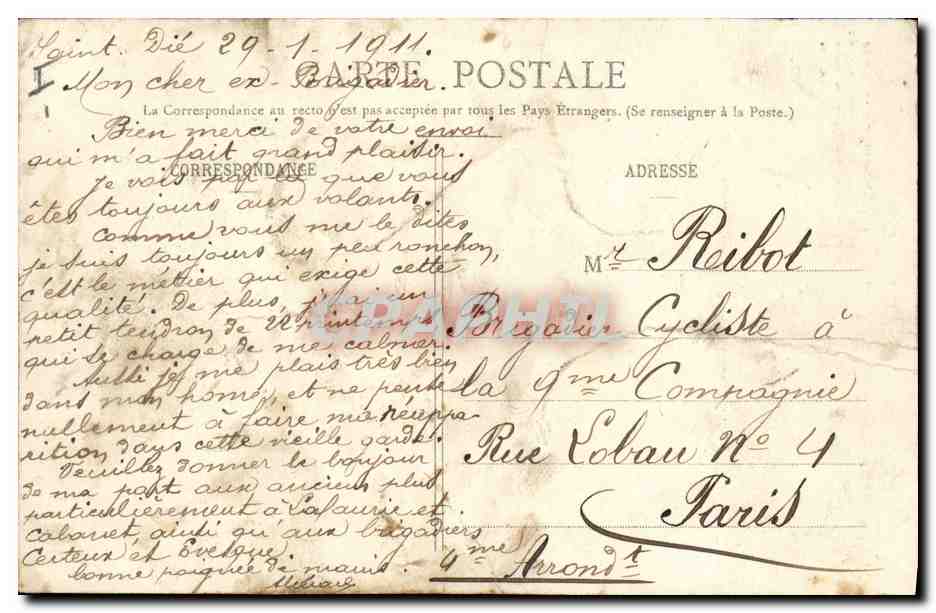 Saint. Dié 29-1-1911.
CARTE POSTALE
Mon cher ex-Brigadier.
La Correspondance au recto n'est pas acceptée par tous les Pays Étrangers. (Se renseigner à la Poste.)
Bien merci de votre envoi
qui m'a fait grand plaisir.
CORRESPONDANCE
Je vois par là que vous
êtes toujours aux volants.
Comme vous me le dites
je suis toujours un peu ronchon,
c'est le métier qui exige cette
qualité. De plus, j'ai un
petit tendron de 22 printemps
qui se charge de me calmer.
Aussi je me plais très bien
dans mon home, et ne pense
nullement à faire ma réappa-
rition dans cette vieille garde.
Veuillez donner le bonjour
de ma part aux anciens plus
particulièrement à Lafaurie et
Cabanet, ainsi qu'aux brigadiers
Certeux et Evesque.
bonne poignée de mains.
ADRESSE
Mr Ribot
Brigadier Cycliste à
la 9me Compagnie
Rue Lobau No 4
Paris
4me Arrondt
CPARHIL